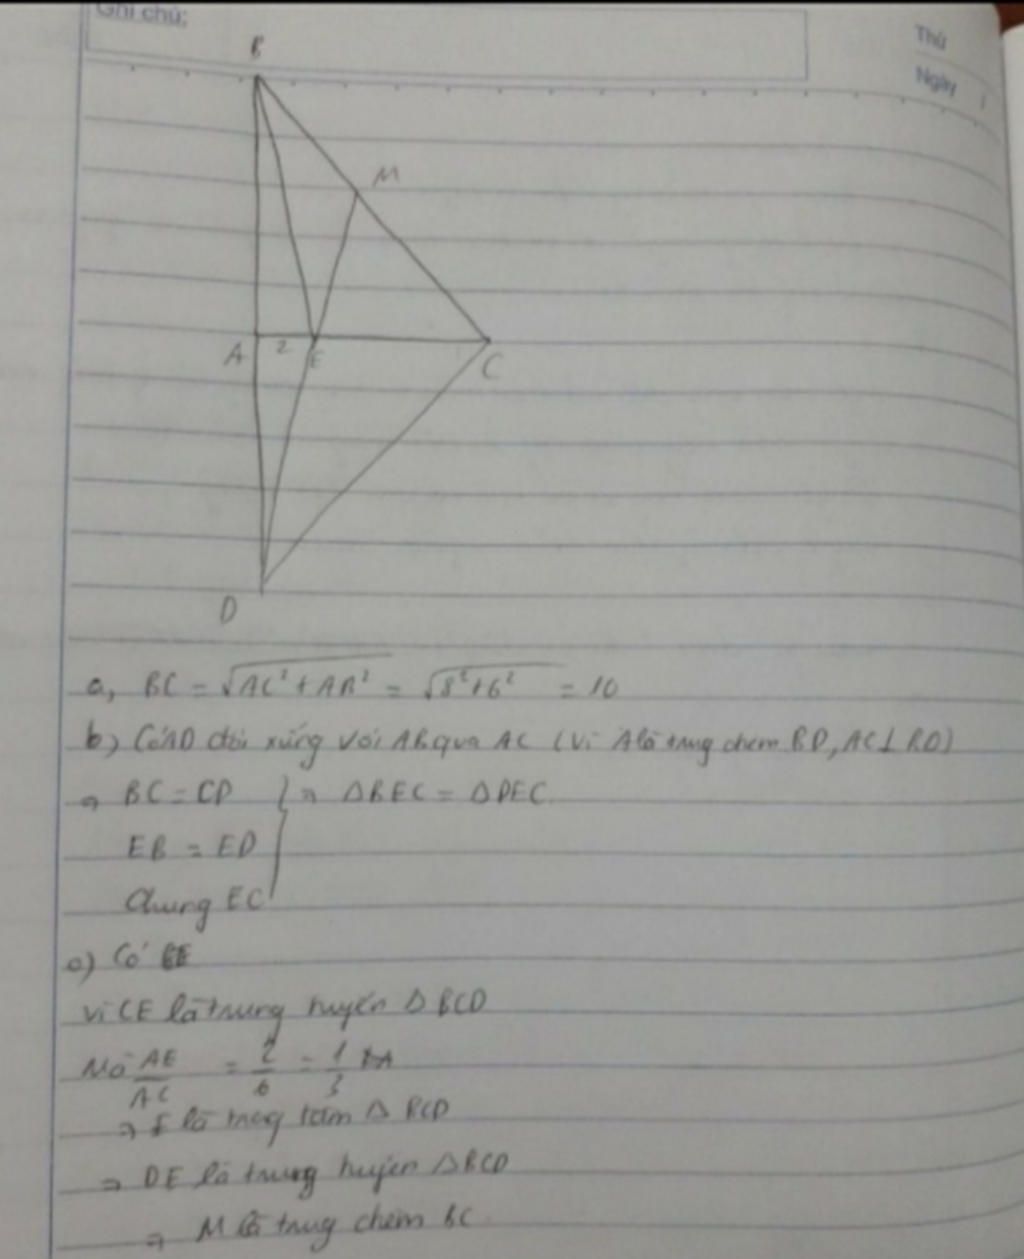 Ghi chú:
Thứ
Ngày
B
M
A 2 E
C
D
a, BC = √AC² + AB² = √8²+6² = 10
b) Có AD đối xứng với AB qua AC (Vì A là trung chem BD, AC⊥BD)
⇒ BC = CD } ⇒ ΔBEC = ΔDEC
EB = ED
Chung EC
c) Có
Vì CE là trung tuyến Δ BCD
Mà AE/AC = 2/6 = 1/3
⇒ E là trọng tâm Δ BCD
⇒ DE là trung tuyến ΔBCD
⇒ M là trung chem BC